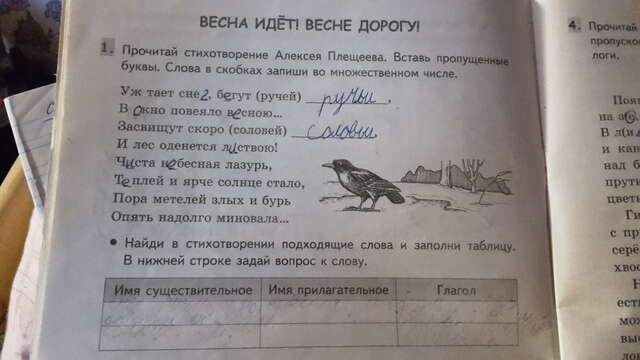 ВЕСНА ИДЁТ! ВЕСНЕ ДОРОГУ!
1. Прочитай стихотворение Алексея Плещеева. Вставь пропущенные
буквы. Слова в скобках запиши во множественном числе.
Уж тает снег, бегут (ручей) ручьи.
В окно повеяло весною...
Засвищут скоро (соловей) соловьи
И лес оденется листвою!
Чиста небесная лазурь,
Теплей и ярче солнце стало,
Пора метелей злых и бурь
Опять надолго миновала...
• Найди в стихотворении подходящие слова и заполни таблицу.
В нижней строке задай вопрос к слову.
Имя существительное Имя прилагательное Глагол
4. Прочитай
логи.